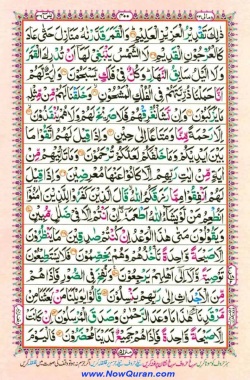 ذٰلِكَ تَقْدِيْرُ الْعَزِيْزِ الْعَلِيْمِ وَالْقَمَرَ قَدَّرْنٰهُ مَنَازِلَ حَتّٰى عَادَ
كَالْعُرْجُوْنِ الْقَدِيْمِ لَا الشَّمْسُ يَنْۢبَغِيْ لَهَاۤ اَنْ تُدْرِكَ الْقَمَرَ
وَلَا الَّيْلُ سَابِقُ النَّهَارِ وَكُلٌّ فِيْ فَلَكٍ يَّسْبَحُوْنَ وَاٰيَةٌ لَّهُمْ
اَنَّا حَمَلْنَا ذُرِّيَّتَهُمْ فِي الْفُلْكِ الْمَشْحُوْنِ وَخَلَقْنَا لَهُمْ
مِّنْ مِّثْلِهٖ مَا يَرْكَبُوْنَ وَاِنْ نَّشَاْ نُغْرِقْهُمْ فَلَا صَرِيْخَ لَهُمْ وَلَا هُمْ يُنْقَذُوْنَ
اِلَّا رَحْمَةً مِّنَّا وَمَتَاعًا اِلٰى حِيْنٍ وَاِذَا قِيْلَ لَهُمُ اتَّقُوْا مَا
بَيْنَ اَيْدِيْكُمْ وَمَا خَلْفَكُمْ لَعَلَّكُمْ تُرْحَمُوْنَ وَمَا تَاْتِيْهِمْ مِّنْ
اٰيَةٍ مِّنْ اٰيٰتِ رَبِّهِمْ اِلَّا كَانُوْا عَنْهَا مُعْرِضِيْنَ وَاِذَا قِيْلَ
لَهُمْ اَنْفِقُوْا مِمَّا رَزَقَكُمُ اللّٰهُ قَالَ الَّذِيْنَ كَفَرُوْا لِلَّذِيْنَ اٰمَنُوْۤا
اَنُطْعِمُ مَنْ لَّوْ يَشَآءُ اللّٰهُ اَطْعَمَهٗۤ اِنْ اَنْتُمْ اِلَّا فِيْ ضَلٰلٍ مُّبِيْنٍ
وَيَقُوْلُوْنَ مَتٰى هٰذَا الْوَعْدُ اِنْ كُنْتُمْ صٰدِقِيْنَ مَا يَنْظُرُوْنَ
اِلَّا صَيْحَةً وَّاحِدَةً تَاْخُذُهُمْ وَهُمْ يَخِصِّمُوْنَ فَلَا يَسْتَطِيْعُوْنَ
تَوْصِيَةً وَّلَاۤ اِلٰۤى اَهْلِهِمْ يَرْجِعُوْنَ وَنُفِخَ فِي الصُّوْرِ فَاِذَا هُمْ
مِّنَ الْاَجْدَاثِ اِلٰى رَبِّهِمْ يَنْسِلُوْنَ قَالُوْا يٰوَيْلَنَا مَنْۢ بَعَثَنَا مِنْ
مَّرْقَدِنَا هٰذَا مَا وَعَدَ الرَّحْمٰنُ وَصَدَقَ الْمُرْسَلُوْنَ اِنْ كَانَتْ
اِلَّا صَيْحَةً وَّاحِدَةً فَاِذَا هُمْ جَمِيْعٌ لَّدَيْنَا مُحْضَرُوْنَ فَالْيَوْمَ
www.NowQuran.com